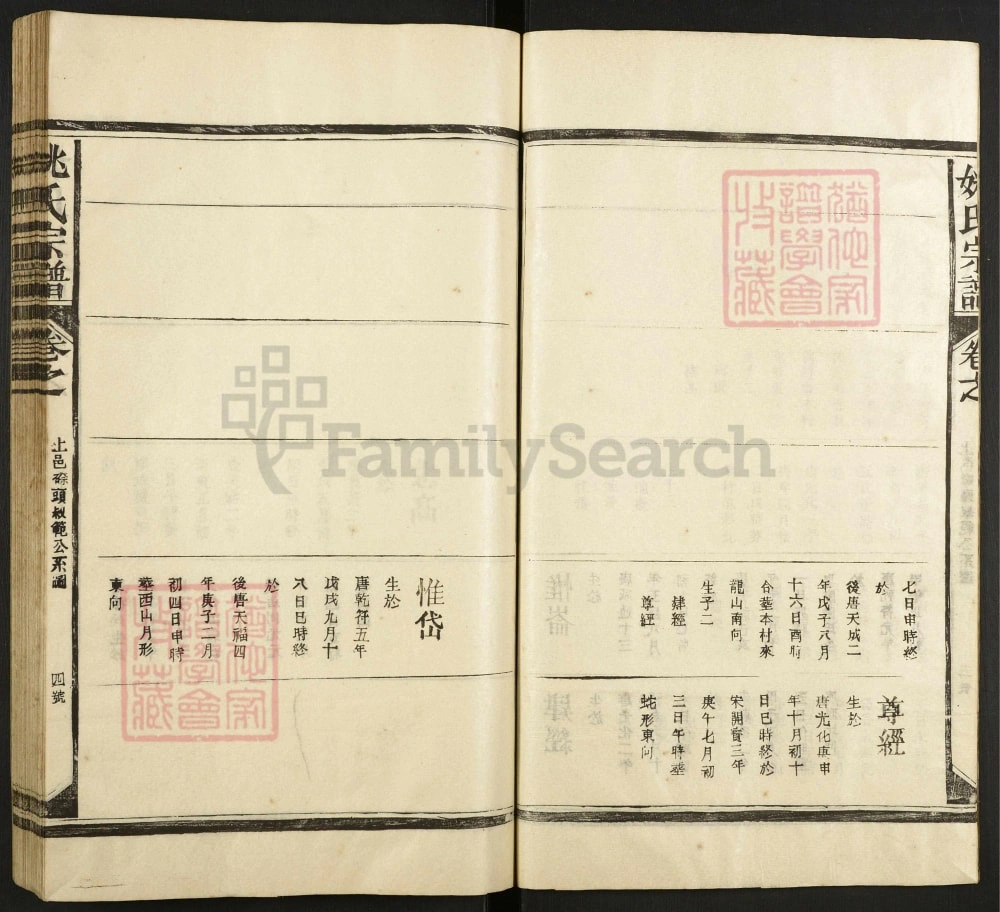 姚氏宗譜
卷之
七日申時終
於
後唐天成二
年戊子六月
十六日酉時
合塟本村來
龍山南向
生子二
肄經
尊經
尊經
生於
唐光化庚申
年十月初十
日巳時終於
宋開寳三年
庚午七月初
三日午時塟
蛇形東向
惟岱
生於
唐乾符五年
戊戌九月十
八日巳時終
於
後唐天福四
年庚子二月
初四日申時
塟西山月形
東向
姚氏宗譜
卷之
上邑 頭叔範公系圖
四號
FamilySearch
譜學會
收藏